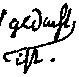 gedacht
ist.